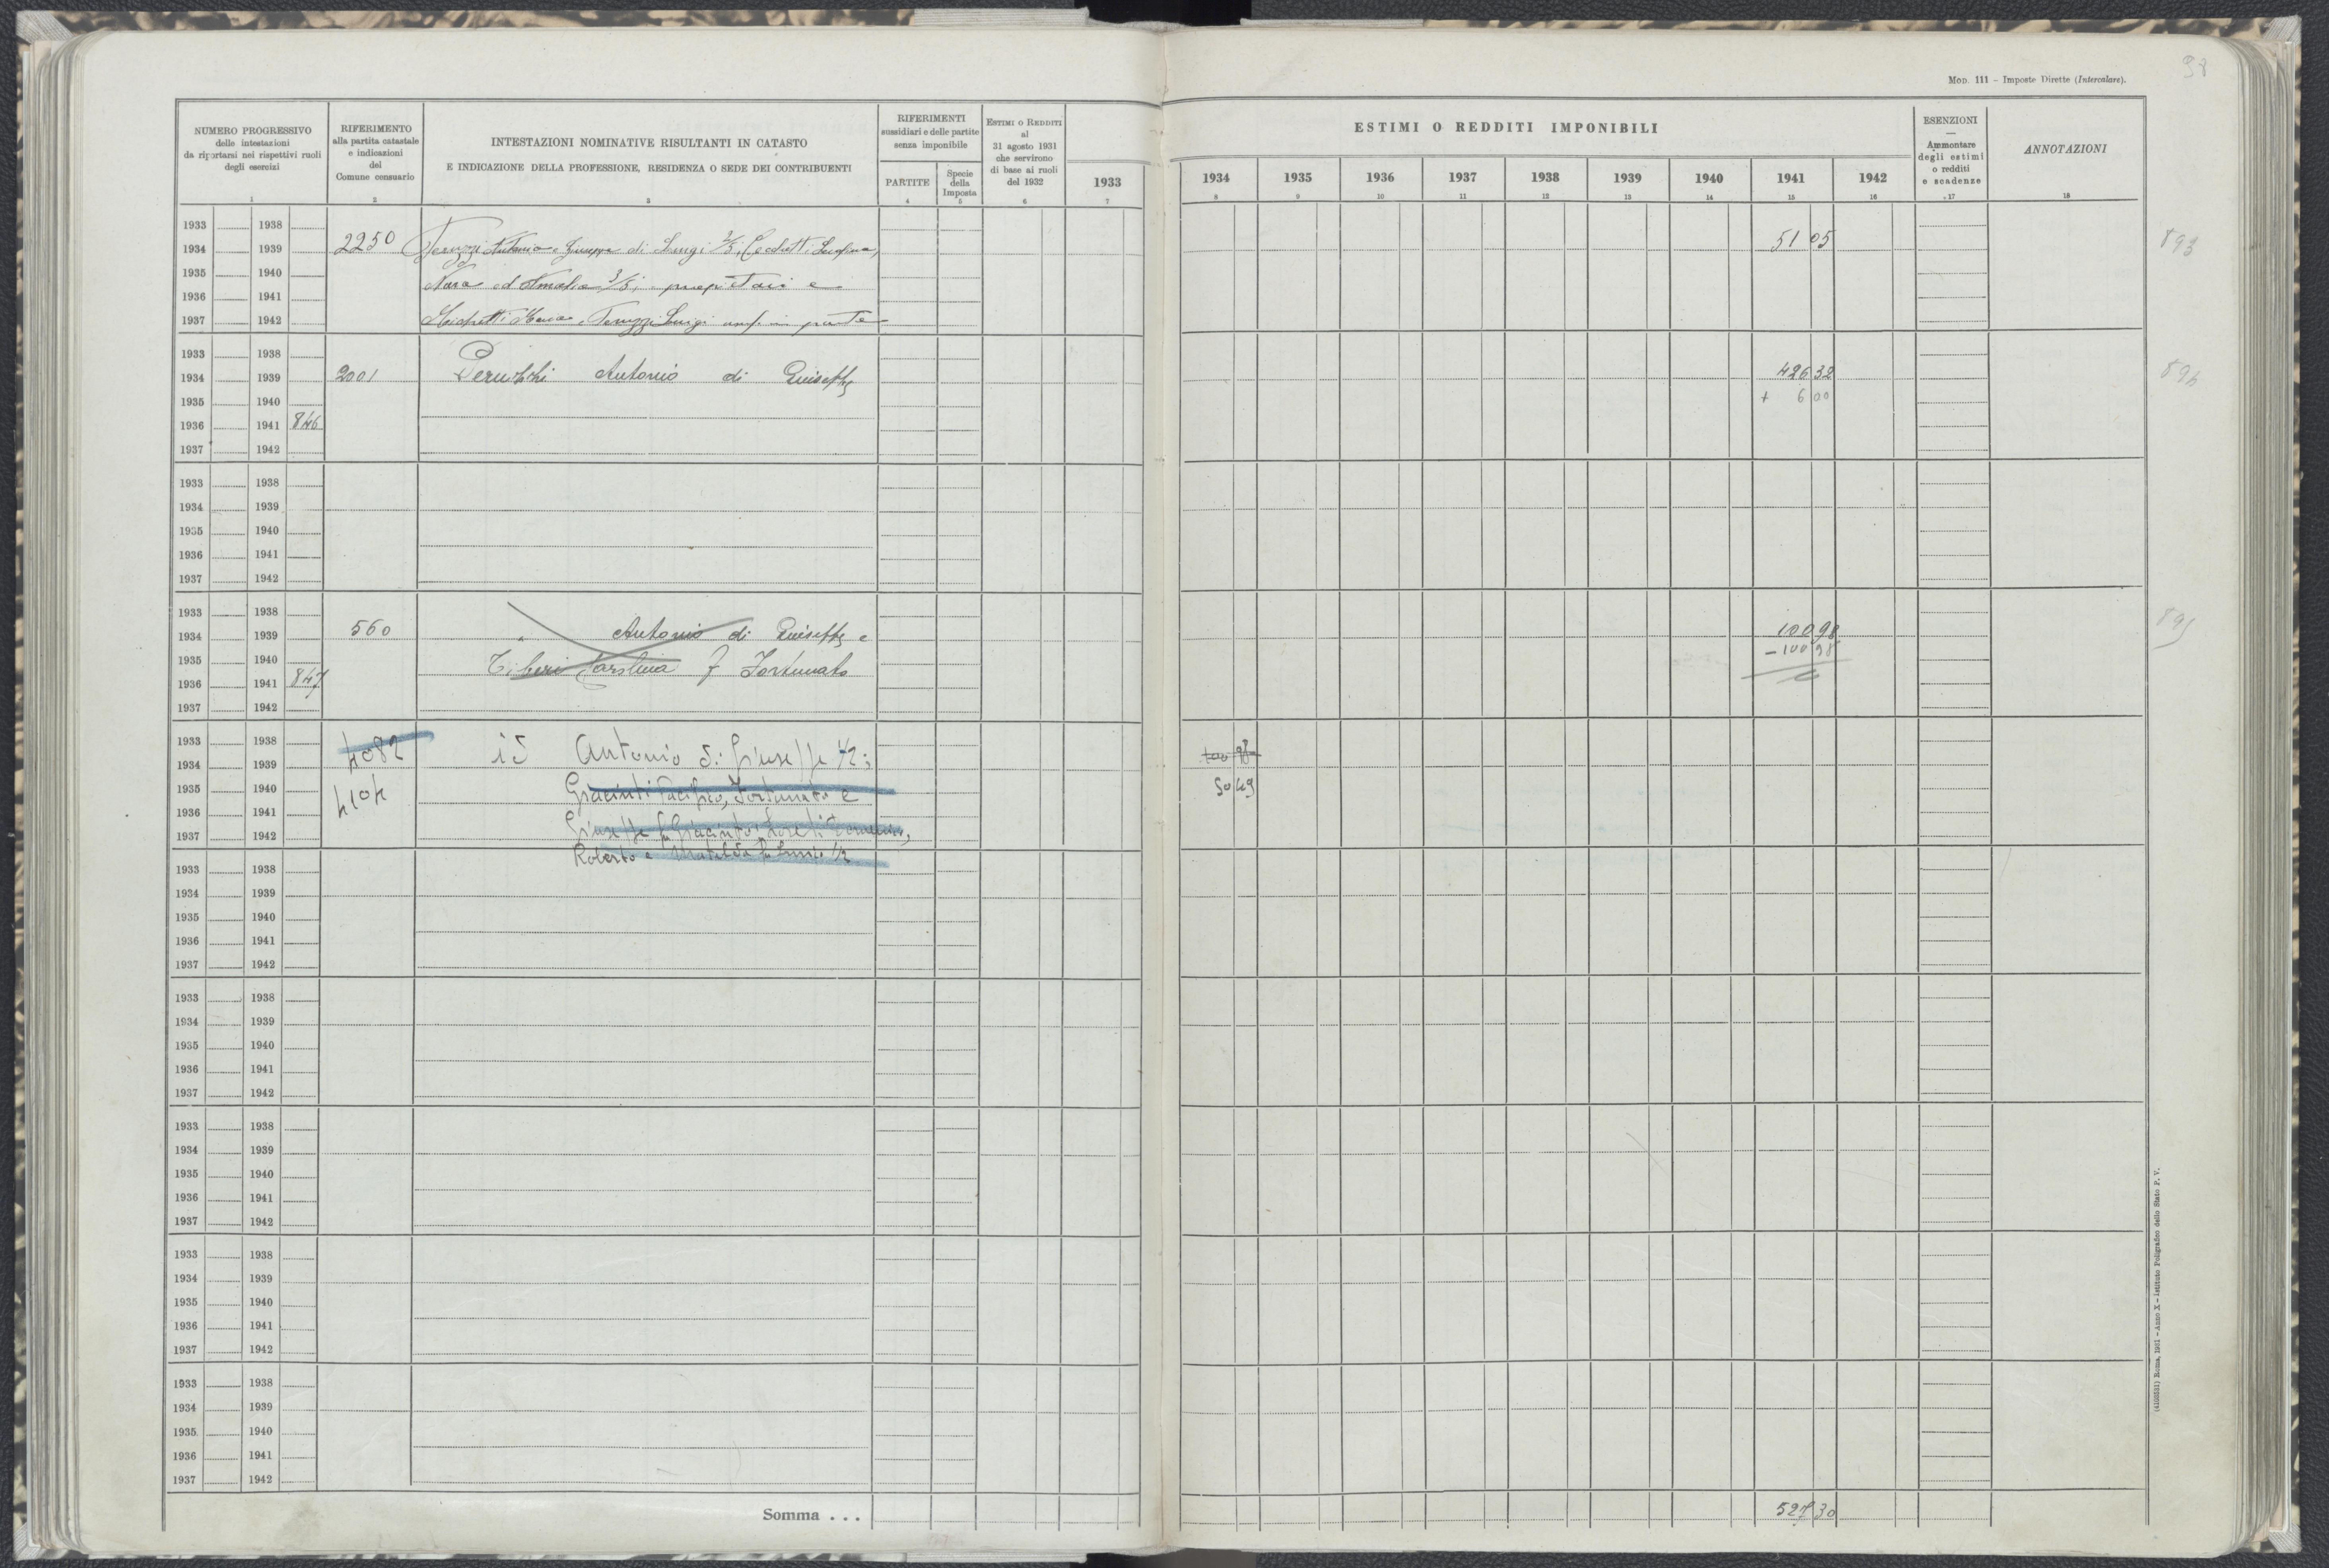 Mod. 111 - Imposte Dirette (Intercalare).
98
NUMERO PROGRESSIVO
delle intestazioni
da riportarsi nei rispettivi ruoli
degli esercizi
1
RIFERIMENTO
alla partita catastale
e indicazioni
del
Comune censuario
2
INTESTAZIONI NOMINATIVE RISULTANTI IN CATASTO
E INDICAZIONE DELLA PROFESSIONE, RESIDENZA O SEDE DEI CONTRIBUENTI
3
RIFERIMENTI
sussidiari e delle partite
senza imponibile
PARTITE
4
Specie
della
Imposta
5
Estimi o Redditi
al
31 agosto 1931
che servirono
di base ai ruoli
del 1932
6
ESTIMI O REDDITI IMPONIBILI
1933
7
1934
8
1935
9
1936
10
1937
11
1938
12
1939
13
1940
14
1941
15
1942
16
ESENZIONI
—
Ammontare
degli estimi
o redditi
e scadenze
17
ANNOTAZIONI
18
1933 1938
1934 1939 2250 Antonio e Giuseppe di Luigi 2/5, 51 05 893
1935 1940 Nara ed Amalia 3/5, proprietari e
1936 1941
1937 1942 Luigi usuf. in parte
1933 1938
1934 1939 2001 Antonio di Giuseppe 426 32
1935 1940 + 6 00
1936 1941 846
1937 1942
1933 1938
1934 1939
1935 1940
1936 1941
1937 1942
1933 1938
1934 1939 560 " Antonio di Giuseppe e 100 98 895
1935 1940 Tiberi Carolina f Fortunato - 100 98
1936 1941 847
1937 1942
1933 1938 4082 id Antonio di Giuseppe 1/2;
1934 1939 100 98
1935 1940 4104 Giacinti Pacifico, Fortunato e 50 49
1936 1941
1937 1942 Giuseppe fu Giacinto; Loreti
Roberto e Matilde fu 1/2
1933 1938
1934 1939
1935 1940
1936 1941
1937 1942
1933 1938
1934 1939
1935 1940
1936 1941
1937 1942
1933 1938
1934 1939
1935 1940
1936 1941
1937 1942
1933 1938
1934 1939
1935 1940
1936 1941
1937 1942
1933 1938
1934 1939
1935 1940
1936 1941
1937 1942
Somma . . . 527 30
(4102531) Roma, 1931 - Anno X - Istituto Poligrafico dello Stato P. V.